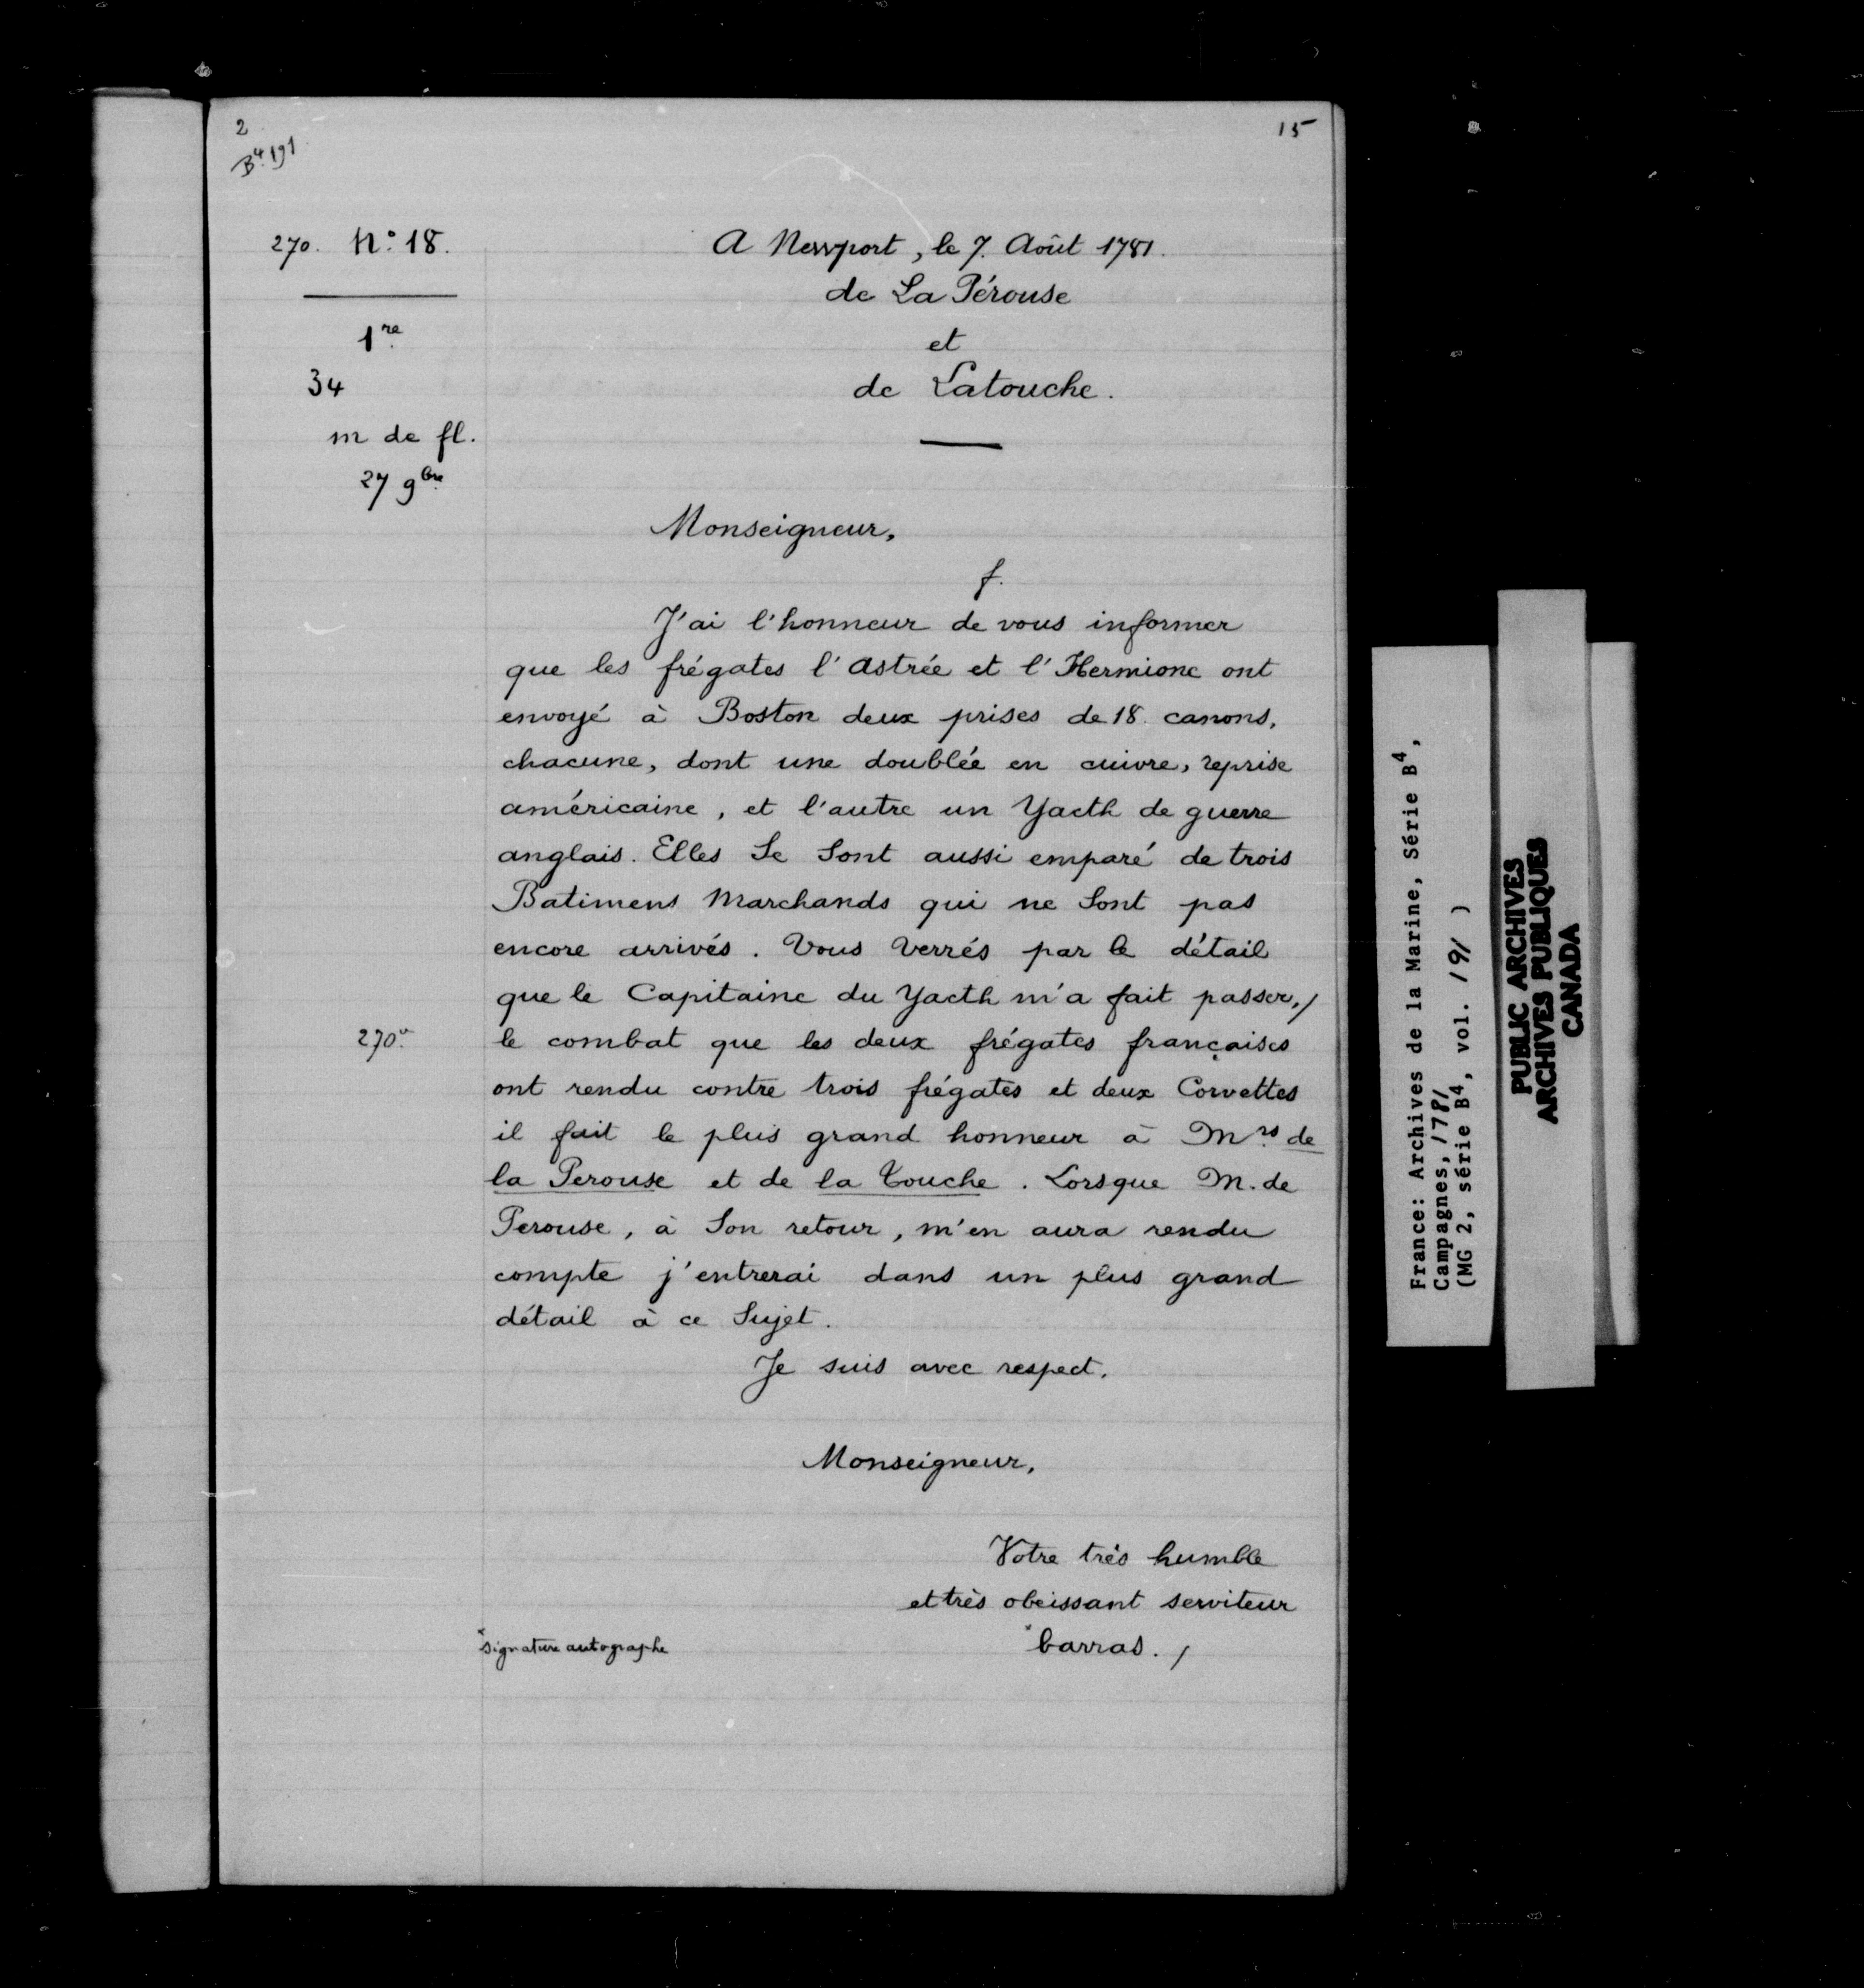 2
B⁴ 191
15
270. N.º 18.
A Newport, le 7. Août 1781.
de La Pérouse
1re
et
34
de Latouche.
m de fl.
27 9bre
Monseigneur,
f.
J'ai l'honneur de vous informer
que les frégates l'Astrée et l'Hermione ont
envoyé à Boston deux prises de 18. canons,
chacune, dont une doublée en cuivre, reprise
américaine, et l'autre un Yacth de guerre
anglais. Elles Se Sont aussi emparé de trois
Batimens Marchands qui ne Sont pas
encore arrivés. Vous Verrés par le détail
que le Capitaine du Yacth m'a fait passer,/
270v
le combat que les deux frégates françaises
ont rendu contre trois frégates et deux Corvettes
il fait le plus grand honneur à Mrs de
la Perouse et de la Touche. Lorsque M. de
Perouse, à Son retour, m'en aura rendu
compte j'entrerai dans un plus grand
détail à ce Sujet.
Je suis avec respect,
Monseigneur,
Votre très humble
et très obeissant serviteur
*signature autographe
*barras. /
France: Archives de la Marine, Série B⁴,
Campagnes, 1781
(MG 2, série B⁴, vol. 191 )
PUBLIC ARCHIVES
ARCHIVES PUBLIQUES
CANADA